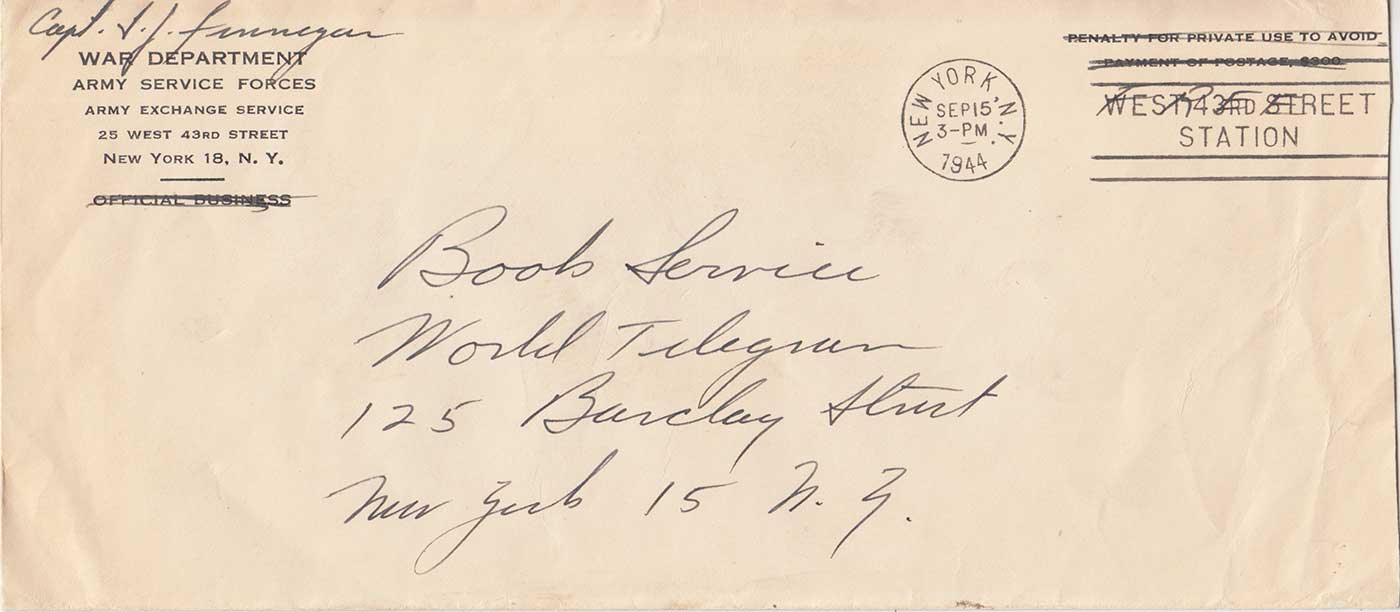 Capt. L. J. Finnegan
WAR DEPARTMENT
ARMY SERVICE FORCES
ARMY EXCHANGE SERVICE
25 WEST 43RD STREET
NEW YORK 18, N. Y.
OFFICIAL BUSINESS
PENALTY FOR PRIVATE USE TO AVOID
PAYMENT OF POSTAGE, $300
NEW YORK, N.Y.
SEP 15
3-PM
1944
WEST 43RD STREET
STATION
Free
Book Service
World Telegram
125 Barclay Street
New York 15 N. Y.